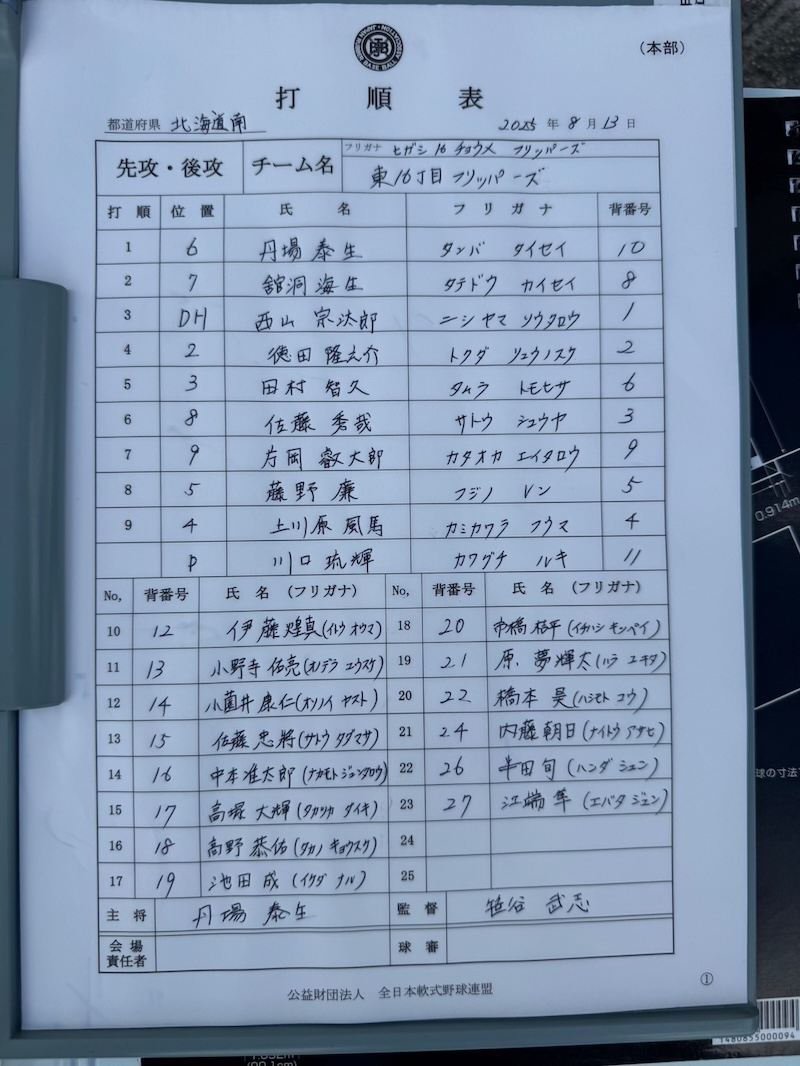 (本部)
打順表
都道府県 北海道南 2025年8月13日
先攻・後攻 チーム名 フリガナ ヒガシ16チョウメ フリッパーズ
東16丁目フリッパーズ
打順 位置 氏名 フリガナ 背番号
1 6 丹場 泰生 タンバ タイセイ 10
2 7 舘洞 海生 タテドウ カイセイ 8
3 DH 西山 宗汰郎 ニシヤマ ソウタロウ 1
4 2 徳田 隆之介 トクダ リュウノスケ 2
5 3 田村 智久 タムラ トモヒサ 6
6 8 佐藤 秀哉 サトウ シュウヤ 3
7 9 片岡 叡太郎 カタオカ エイタロウ 9
8 5 藤野 廉 フジノ レン 5
9 4 上川原 風馬 カミカワラ フウマ 4
P 川口 琉輝 カワグチ ルキ 11
No, 背番号 氏名(フリガナ) No, 背番号 氏名(フリガナ)
10 12 伊藤 煌真(イトウ オウマ) 18 20 市橋 桔平(イチハシ キッペイ)
11 13 小野寺 佑亮(オノデラ ユウスケ) 19 21 原 夢輝太(ハラ ユキタ)
12 14 小薗井 康仁(オソノイ ヤスト) 20 22 橋本 昊(ハシモト コウ)
13 15 佐藤 忠将(サトウ タダマサ) 21 24 内藤 朝日(ナイトウ アサヒ)
14 16 中本 准太郎(ナカモト ジュンタロウ) 22 26 半田 旬(ハンダ シュン)
15 17 高塚 大輝(タカツカ ダイキ) 23 27 江端 隼(エバタ ジュン)
16 18 高野 恭佑(タカノ キョウスケ) 24
17 19 池田 成(イケダ ナル) 25
主将 丹場 泰生 監督 笹谷 武志
会場責任者 球審
公益財団法人 全日本軟式野球連盟
①
0.914m
球の寸法
1480855000094